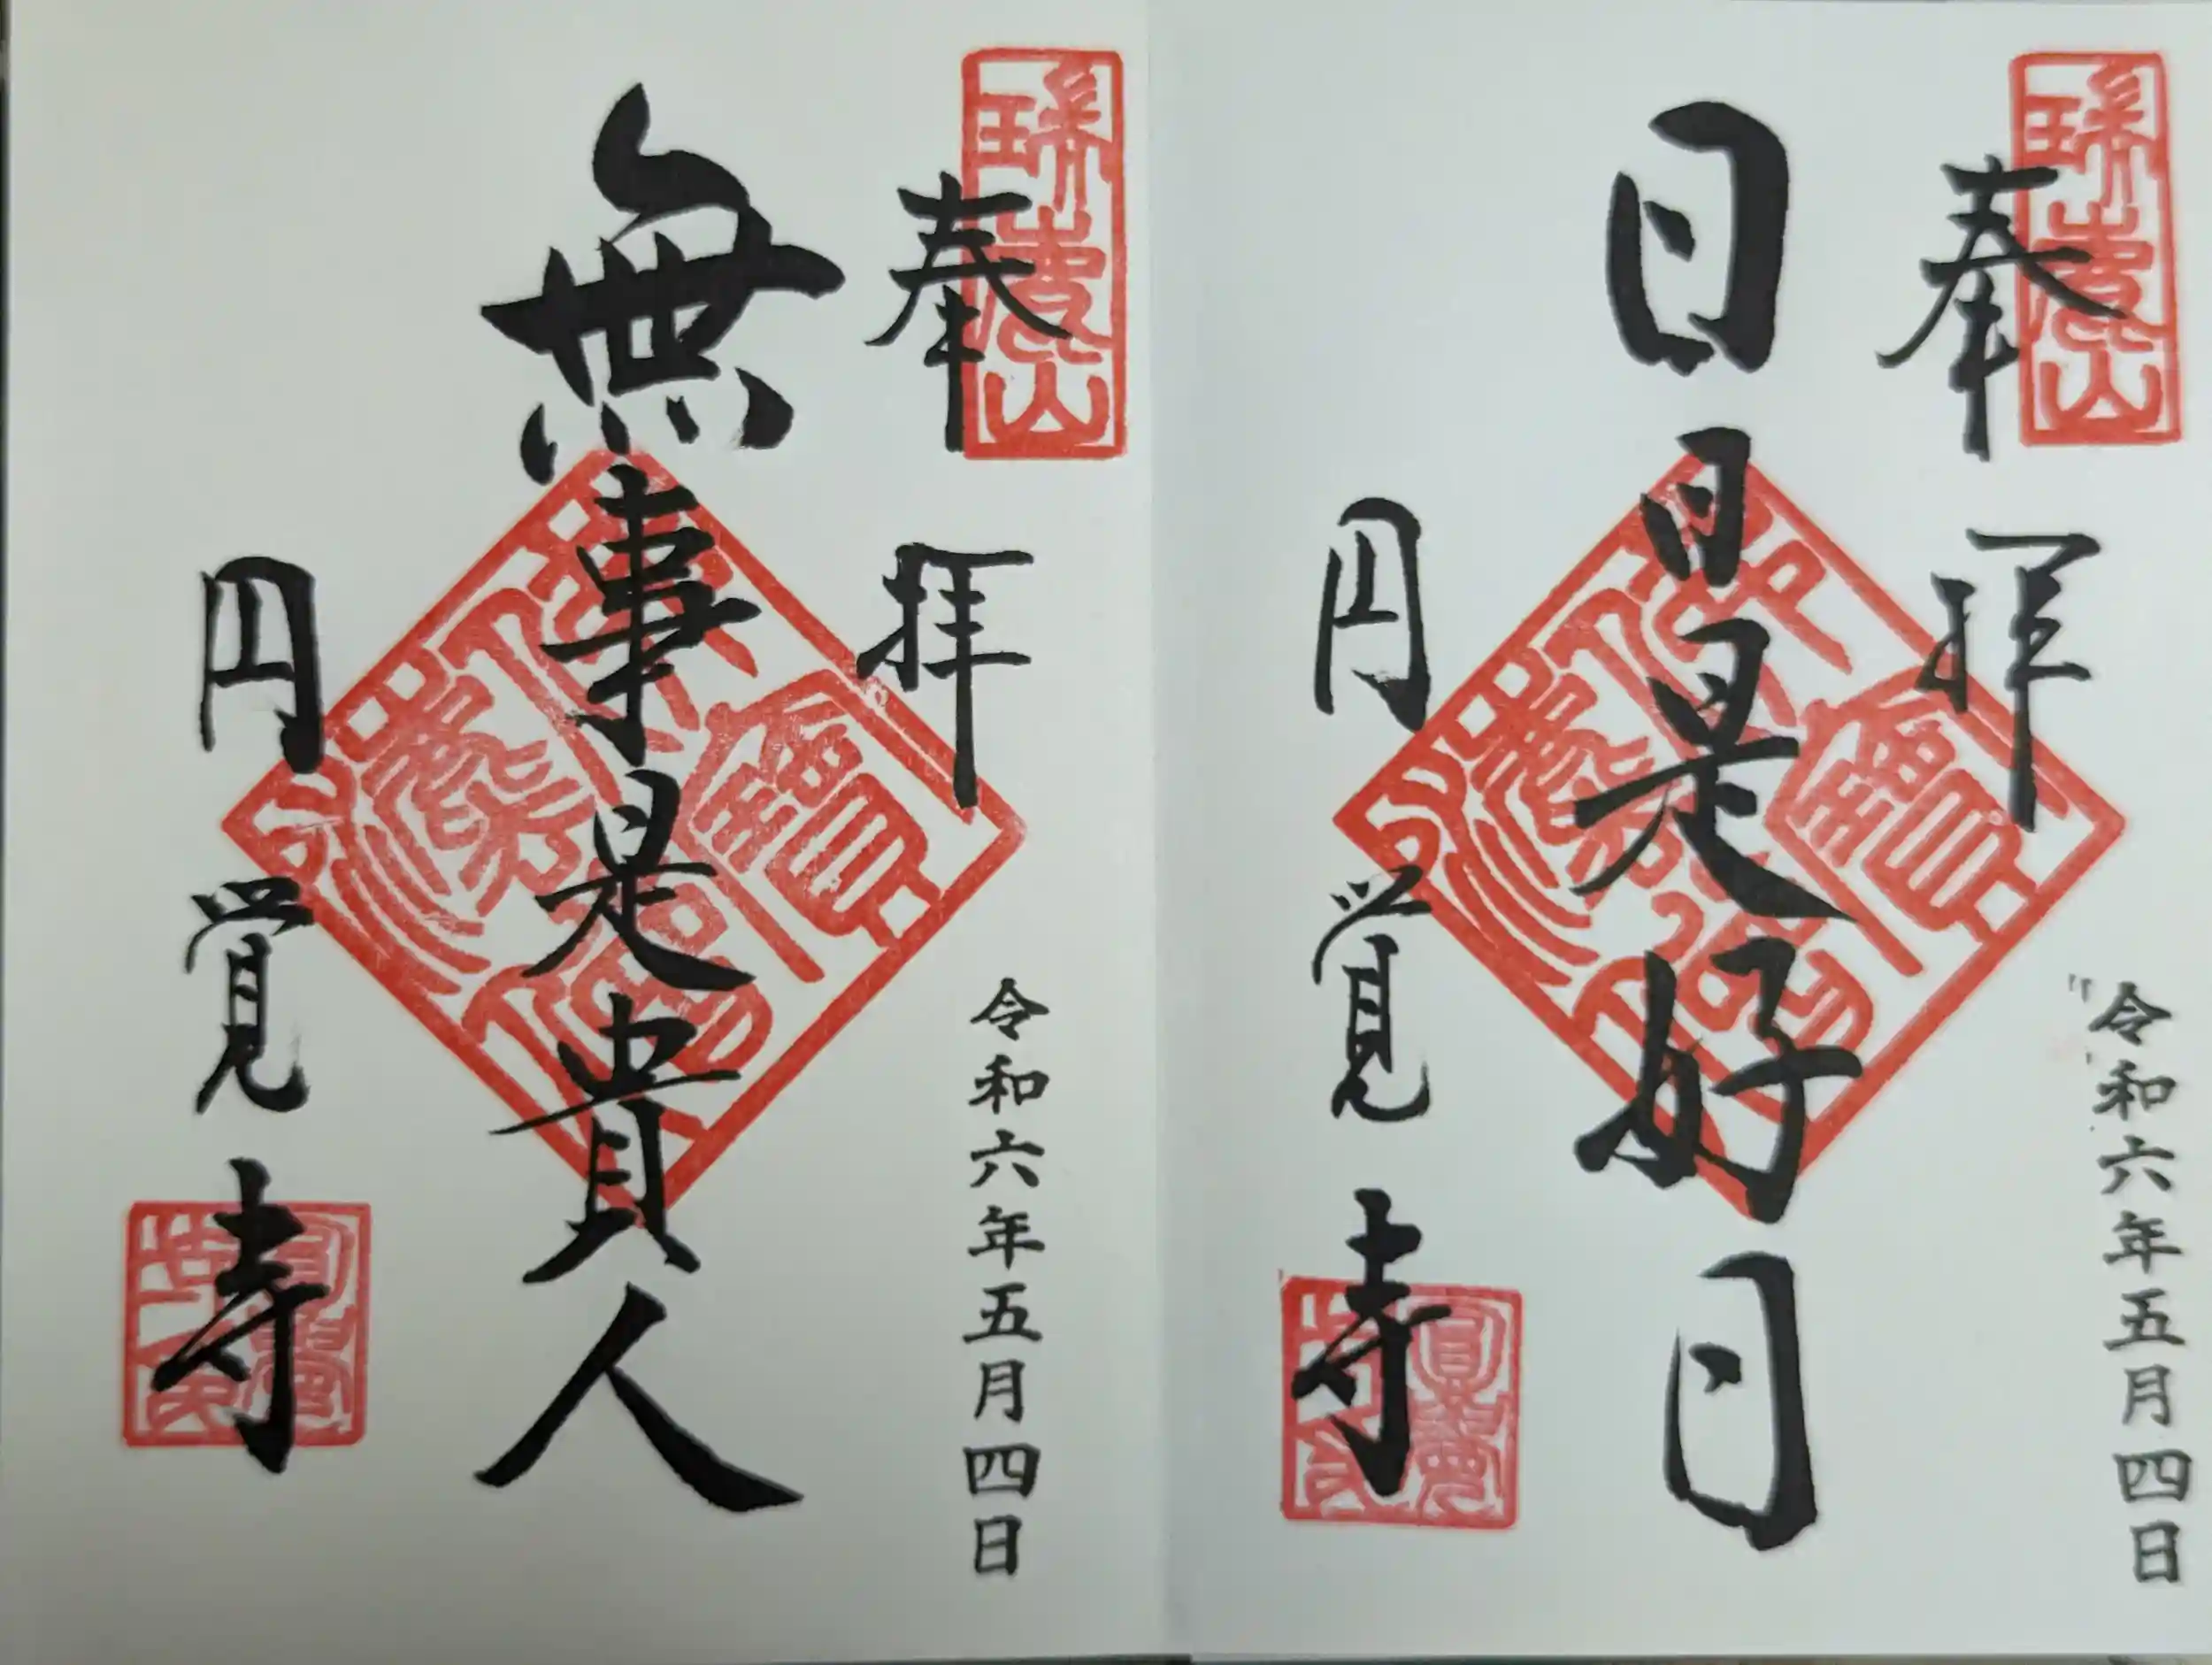 瑞鹿山
奉拝
令和六年五月四日
日日是好日
円覚寺
瑞鹿山
奉拝
令和六年五月四日
無事是貴人
円覚寺